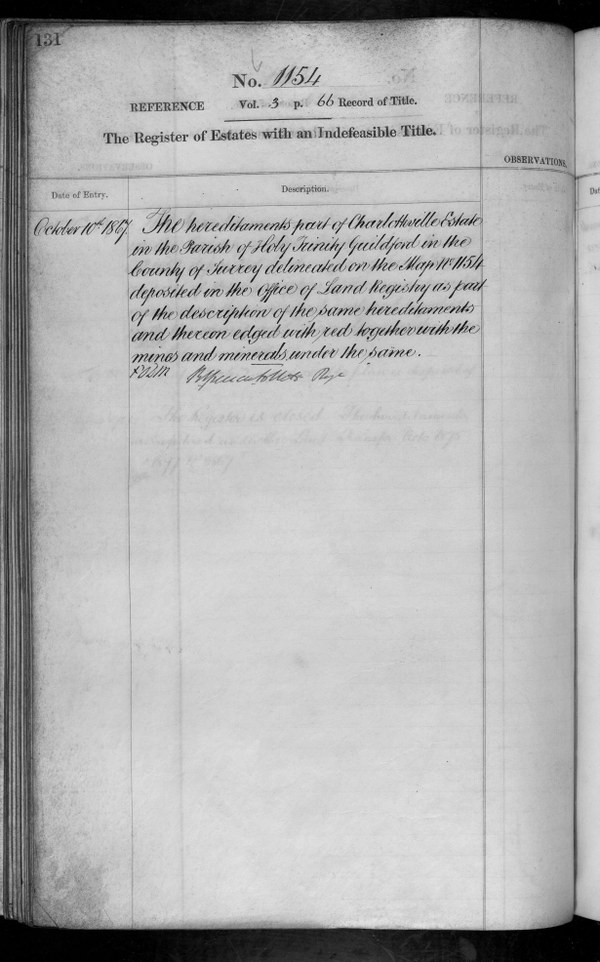 131
No. 1154
REFERENCE Vol. 3 p. 66 Record of Title.
The Register of Estates with an Indefeasible Title.
OBSERVATIONS.
Date of Entry.
Description.
October 10th 1867
The hereditaments part of Charlotteville Estate
in the Parish of Holy Trinity Guildford in the
County of Surrey delineated on the Map No 1154
deposited in the Office of Land Registry as part
of the description of the same hereditaments
and thereon edged with red together with the
mines and minerals under the same.